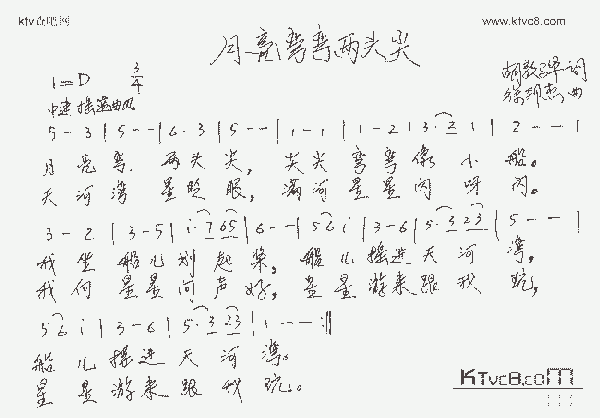 ktv吉吧网
www.ktvc8.com
月亮弯弯两头尖
1=D 3/4
胡敦骅 词
中速 摇篮曲风
徐邦杰 曲
5 - 3 | 5 - - | 6 · 3 | 5 - - | 1 - 1 | 1 - 2 | 3 · 2 1 | 2 - - |
月亮弯，两头尖，尖尖弯弯像小船。
天河湾星照眼，满河星星闪呀闪。
3 - 2 | 3 - 5 | i · 7 6 5 | 6 - - | 5 6 i | 3 - 6 | 5 · 3 2 3 | 5 - - |
我坐船儿划起桨，船儿摇进天河湾，
我向星星问声好，星星游来跟我玩，
5 6 i | 3 - 6 | 5 · 3 2 3 | 1 - - :||
船儿摇进天河湾。
星星游来跟我玩。
KTvc8.com